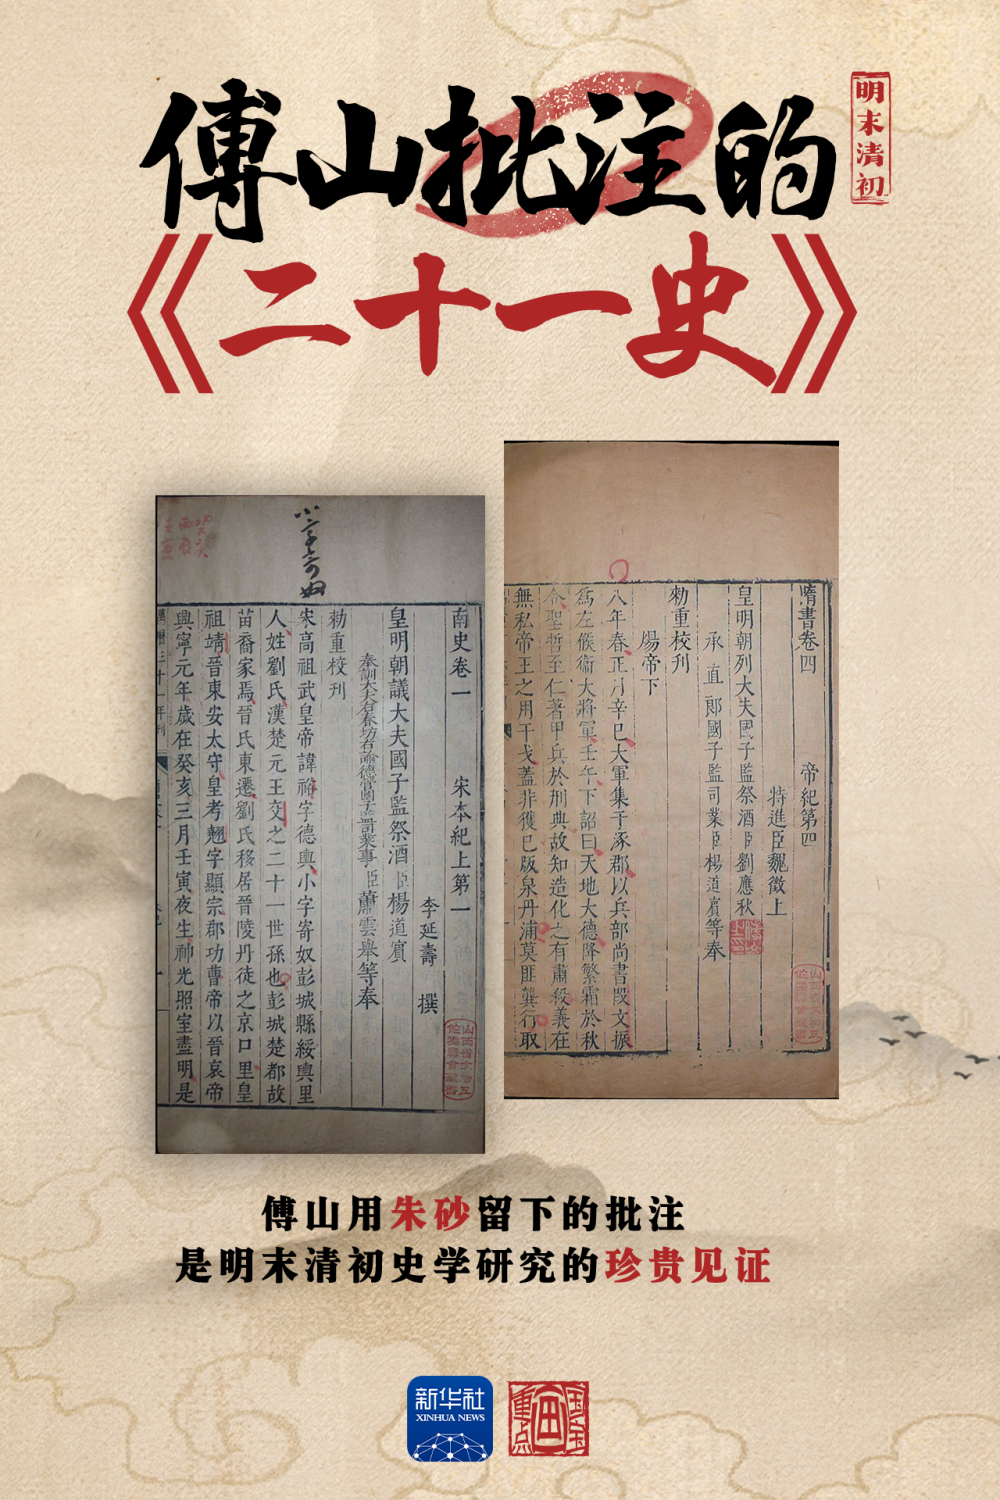 傅山批注的
明末清初
《二十一史》
小字寄奴
南史卷一 宋本紀上第一
李延壽 撰
皇明朝議大夫國子監祭酒臣楊道賓
奉訓大夫右春坊右諭德管國子監司業事臣蕭雲舉等奉
勅重校刊
宋高祖武皇帝諱裕字德輿小字寄奴彭城縣綏輿里
人姓劉氏漢楚元王交之二十一世孫也彭城楚都故
苗裔家焉晉氏東遷劉氏移居晉陵丹徒之京口里皇
祖靖晉東安太守皇考翹字顯宗郡功曹帝以晉哀帝
興寧元年歲在癸亥三月壬寅夜生神光照室盡明是
隋書卷四 帝紀第四
特進臣魏徵上
皇明朝列大夫國子監祭酒臣劉應秋
承直郎國子監司業臣楊道賓等奉
勅重校刊
煬帝下
八年春正月辛巳大軍集于涿郡以兵部尚書段文振
為左候衛大將軍壬午下詔曰天地大德降繁霜於秋
令聖哲至仁著甲兵於刑典故知造化之有肅殺義在
無私帝王之用干戈蓋非獲已版泉丹浦莫匪龔行取
傅山用朱砂留下的批注
是明末清初史学研究的珍贵见证
新华社
XINHUA NEWS
国宝
重点